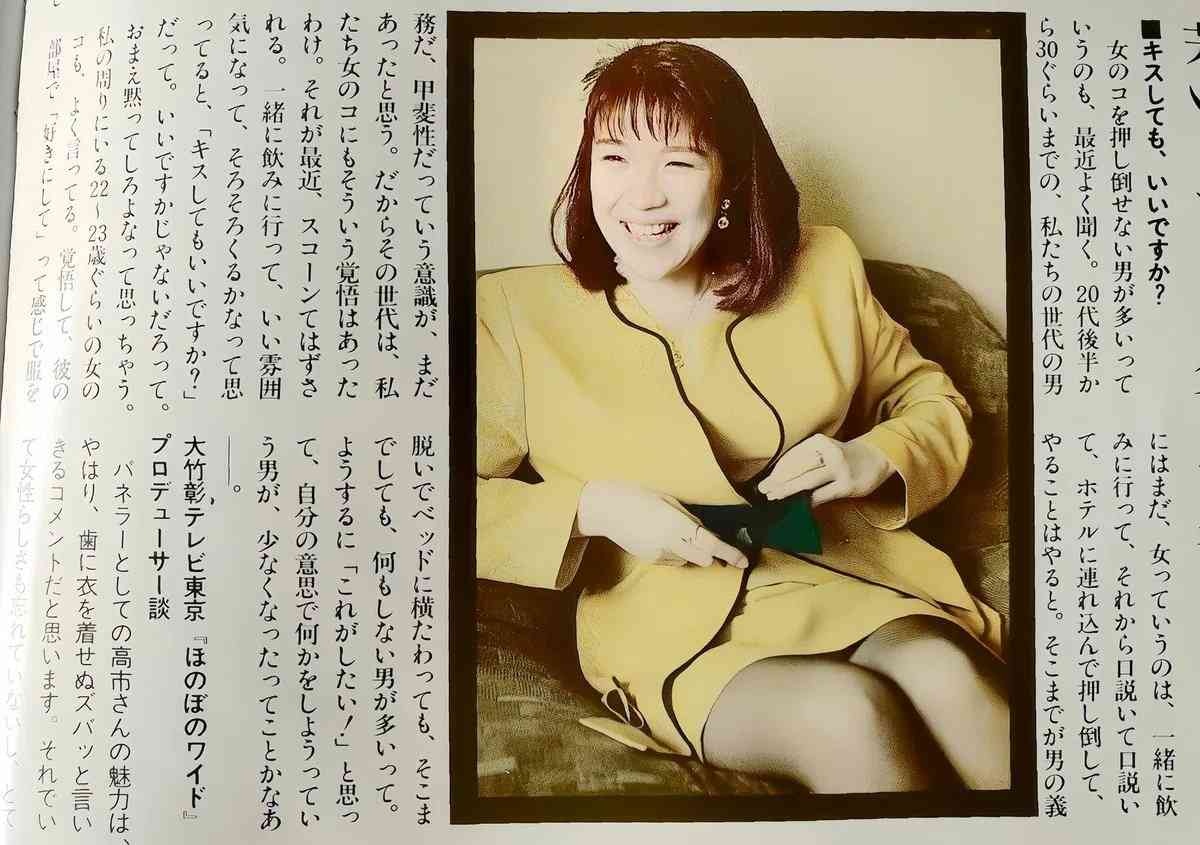 ■キスしても、いいですか?
女のコを押し倒せない男が多いって
いうのも、最近よく聞く。20代後半か
ら30ぐらいまでの、私たちの世代の男
にはまだ、女っていうのは、一緒に飲
みに行って、それから口説いて口説い
て、ホテルに連れ込んで押し倒して、
やることはやると。そこまでが男の義
務だ、甲斐性だっていう意識が、まだ
あったと思う。だからその世代は、私
たち女のコにもそういう覚悟はあった
わけ。それが最近、スコーンてはずさ
れる。一緒に飲みに行って、いい雰囲
気になって、そろそろくるかなって思
ってると、「キスしてもいいですか?」
だって。いいですかじゃないだろって。
おまえ黙ってしろよなって思っちゃう。
私の周りにいる22〜23歳ぐらいの女の
コも、よく言ってる。覚悟して、彼の
部屋で「好きにして」って感じで服を
脱いでベッドに横たわっても、そこま
でしても、何もしない男が多いって。
ようするに「これがしたい!」と思っ
て、自分の意思で何かをしようってい
う男が、少なくなったってことかなあ
――。
大竹彰テレビ東京『ほのぼのワイド』
プロデューサー談
パネラーとしての高市さんの魅力は、
やはり、歯に衣を着せぬズバッと言い
きるコメントだと思います。それでい
て女性らしさも忘れていないし、とて